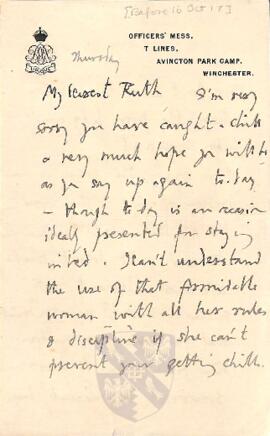 [Before 16 Oct 17]
OFFICERS' MESS,
T LINES,
AVINGTON PARK CAMP,
WINCHESTER.
Thursday
My dearest Ruth I'm very
sorry you have caught a chill
& very much hope you will be
as you say up again to-day
- though to-day is an occasion
ideally presented for staying
in bed. I can't understand
the use of that formidable
woman with all her rules
& discipline if she can't
prevent your getting chill.